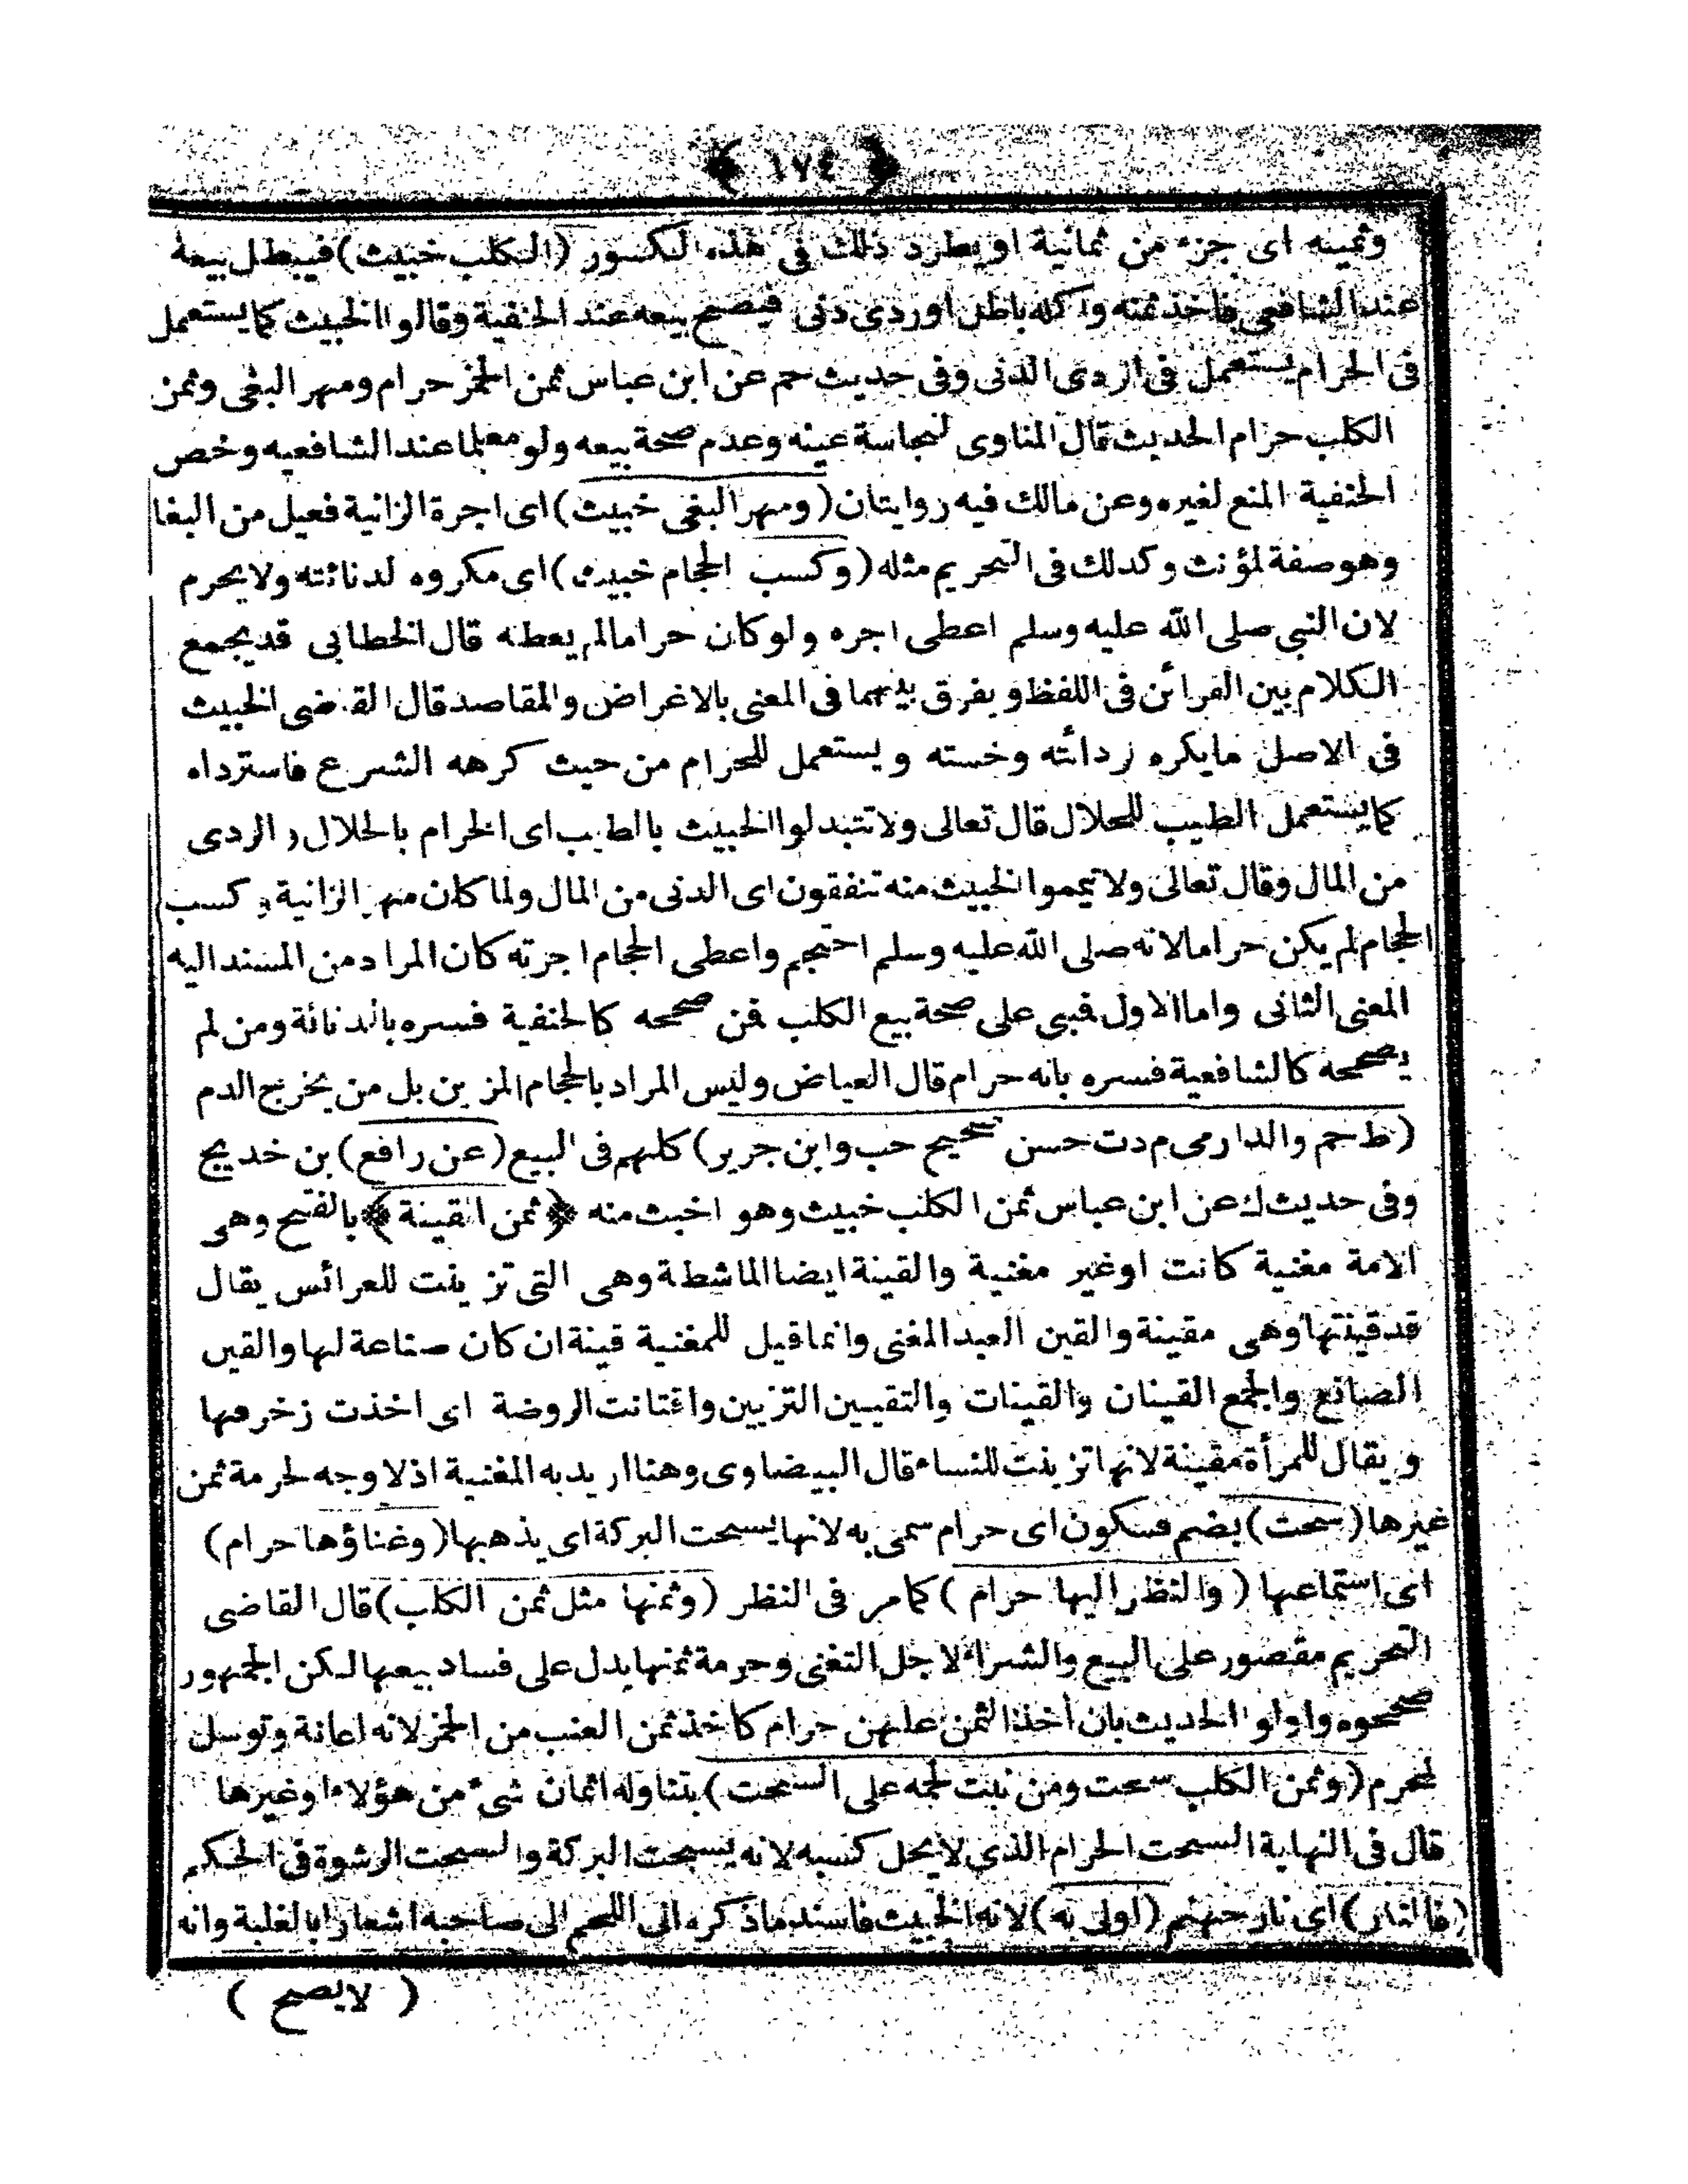 ﴿ ١٧٤ ﴾
وثمينه اى جزء من ثمانية او يطرد ذلك فى هذه الكسور (الكلب خبيث) فيبطل بيعه
عند الشافعى فاخذ ثمنه واكله باطل او ردى دنى فيصح بيعه عند الحنفية وقالوا الخبيث كما يستعمل
فى الحرام يستعمل فى اردى الدنى وفى حديث حم عن ابن عباس ثمن الخمر حرام ومهر البغى وثمن
الكلب حرام الحديث قال المناوى لنجاسة عينه وعدم صحة بيعه ولو معلما عند الشافعيه وخص
الحنفية المنع لغيره وعن مالك فيه روايتان (ومهر البغى خبيث) اى اجرة الزانية فعيل من البغا
وهو صفة لمؤنث وكذلك فى التحريم مثله (وكسب الحجام خبيث) اى مكروه لدنائته ولا يحرم
لان النبى صلى الله عليه وسلم اعطى اجره ولو كان حراما لم يعطه قال الخطابى قد يجمع
الكلام بين القرائن فى اللفظ ويفرق بينهما فى المعنى بالاغراض والمقاصد قال القاضى الخبيث
فى الاصل مايكره زدائته وخسته ويستعمل للحرام من حيث كرهه الشرع فاسترداه
كما يستعمل الطيب للحلال قال تعالى ولا تتبدلوا الخبيث بالطيب اى الحرام بالحلال والردى
من المال وقال تعالى ولا تيمموا الخبيث منه تنفقون اى الدنى من المال ولما كان مهر الزانية وكسب
الحجام لم يكن حراما لانه صلى الله عليه وسلم احتجم واعطى الحجام اجرته كان المراد من المسند اليه
المعنى الثانى واما الاول فبى على صحة بيع الكلب فمن صححه كالحنفية فسره بالدنائة ومن لم
يصححه كالشافعية فسره بانه حرام قال العياض وليس المراد بالحجام المزين بل من يخرج الدم
(ط حم والدارمى م د ت حسن صحيح حب وابن جرير) كلهم فى البيع (عن رافع) بن خديج
وفى حديث ك عن ابن عباس ثمن الكلب خبيث وهو اخبث منه ﴿ثمن القينة﴾ بالفتح وهى
الامة مغنية كانت او غير مغنية والقينة ايضا الماشطة وهى التى تزينت للعرائس يقال
قد قينتها وهى مقينة والقين العبد المغنى وانما قيل للمغنية قينة ان كان صناعة لها والقين
الصانع والجمع القينان والقينات والتقيين التزيين واقتانت الروضة اى اخذت زخرفها
ويقال للمرأة مقينة لانها تزينت للنساء قال البيضاوى وهنا اريد به المغنية اذ لا وجه لحرمة ثمن
غيرها (سحت) بضم فسكون اى حرام سمى به لانها يسحت البركة اى يذهبها (وغناؤها حرام)
اى استماعها (والنظر اليها حرام) كما مر فى النظر (وثمنها مثل ثمن الكلب) قال القاضى
التحريم مقصور على البيع والشراء لاجل التغنى وحرمة ثمنها يدل على فساد بيعها لكن الجمهور
صححوه واولوا الحديث بان أخذ الثمن علهن حرام كاخذ ثمن العنب من الخمر لانه اعانة وتوسل
لمحرم (وثمن الكلب سحت ومن نبت لحمه على السحت) بتناوله اثمان شىء من هؤلاء او غيرها
قال فى النهاية السحت الحرام الذى لا يحل كسبه لانه يسحت البركة والسحت الرشوة فى الحكم
(فالنار) اى نار جهنم (اولى به) لانه الخبيث فاسند ماذكره الى اللحم الى صاحبه اشعارا بالغلبة وانه
( لا يصح )